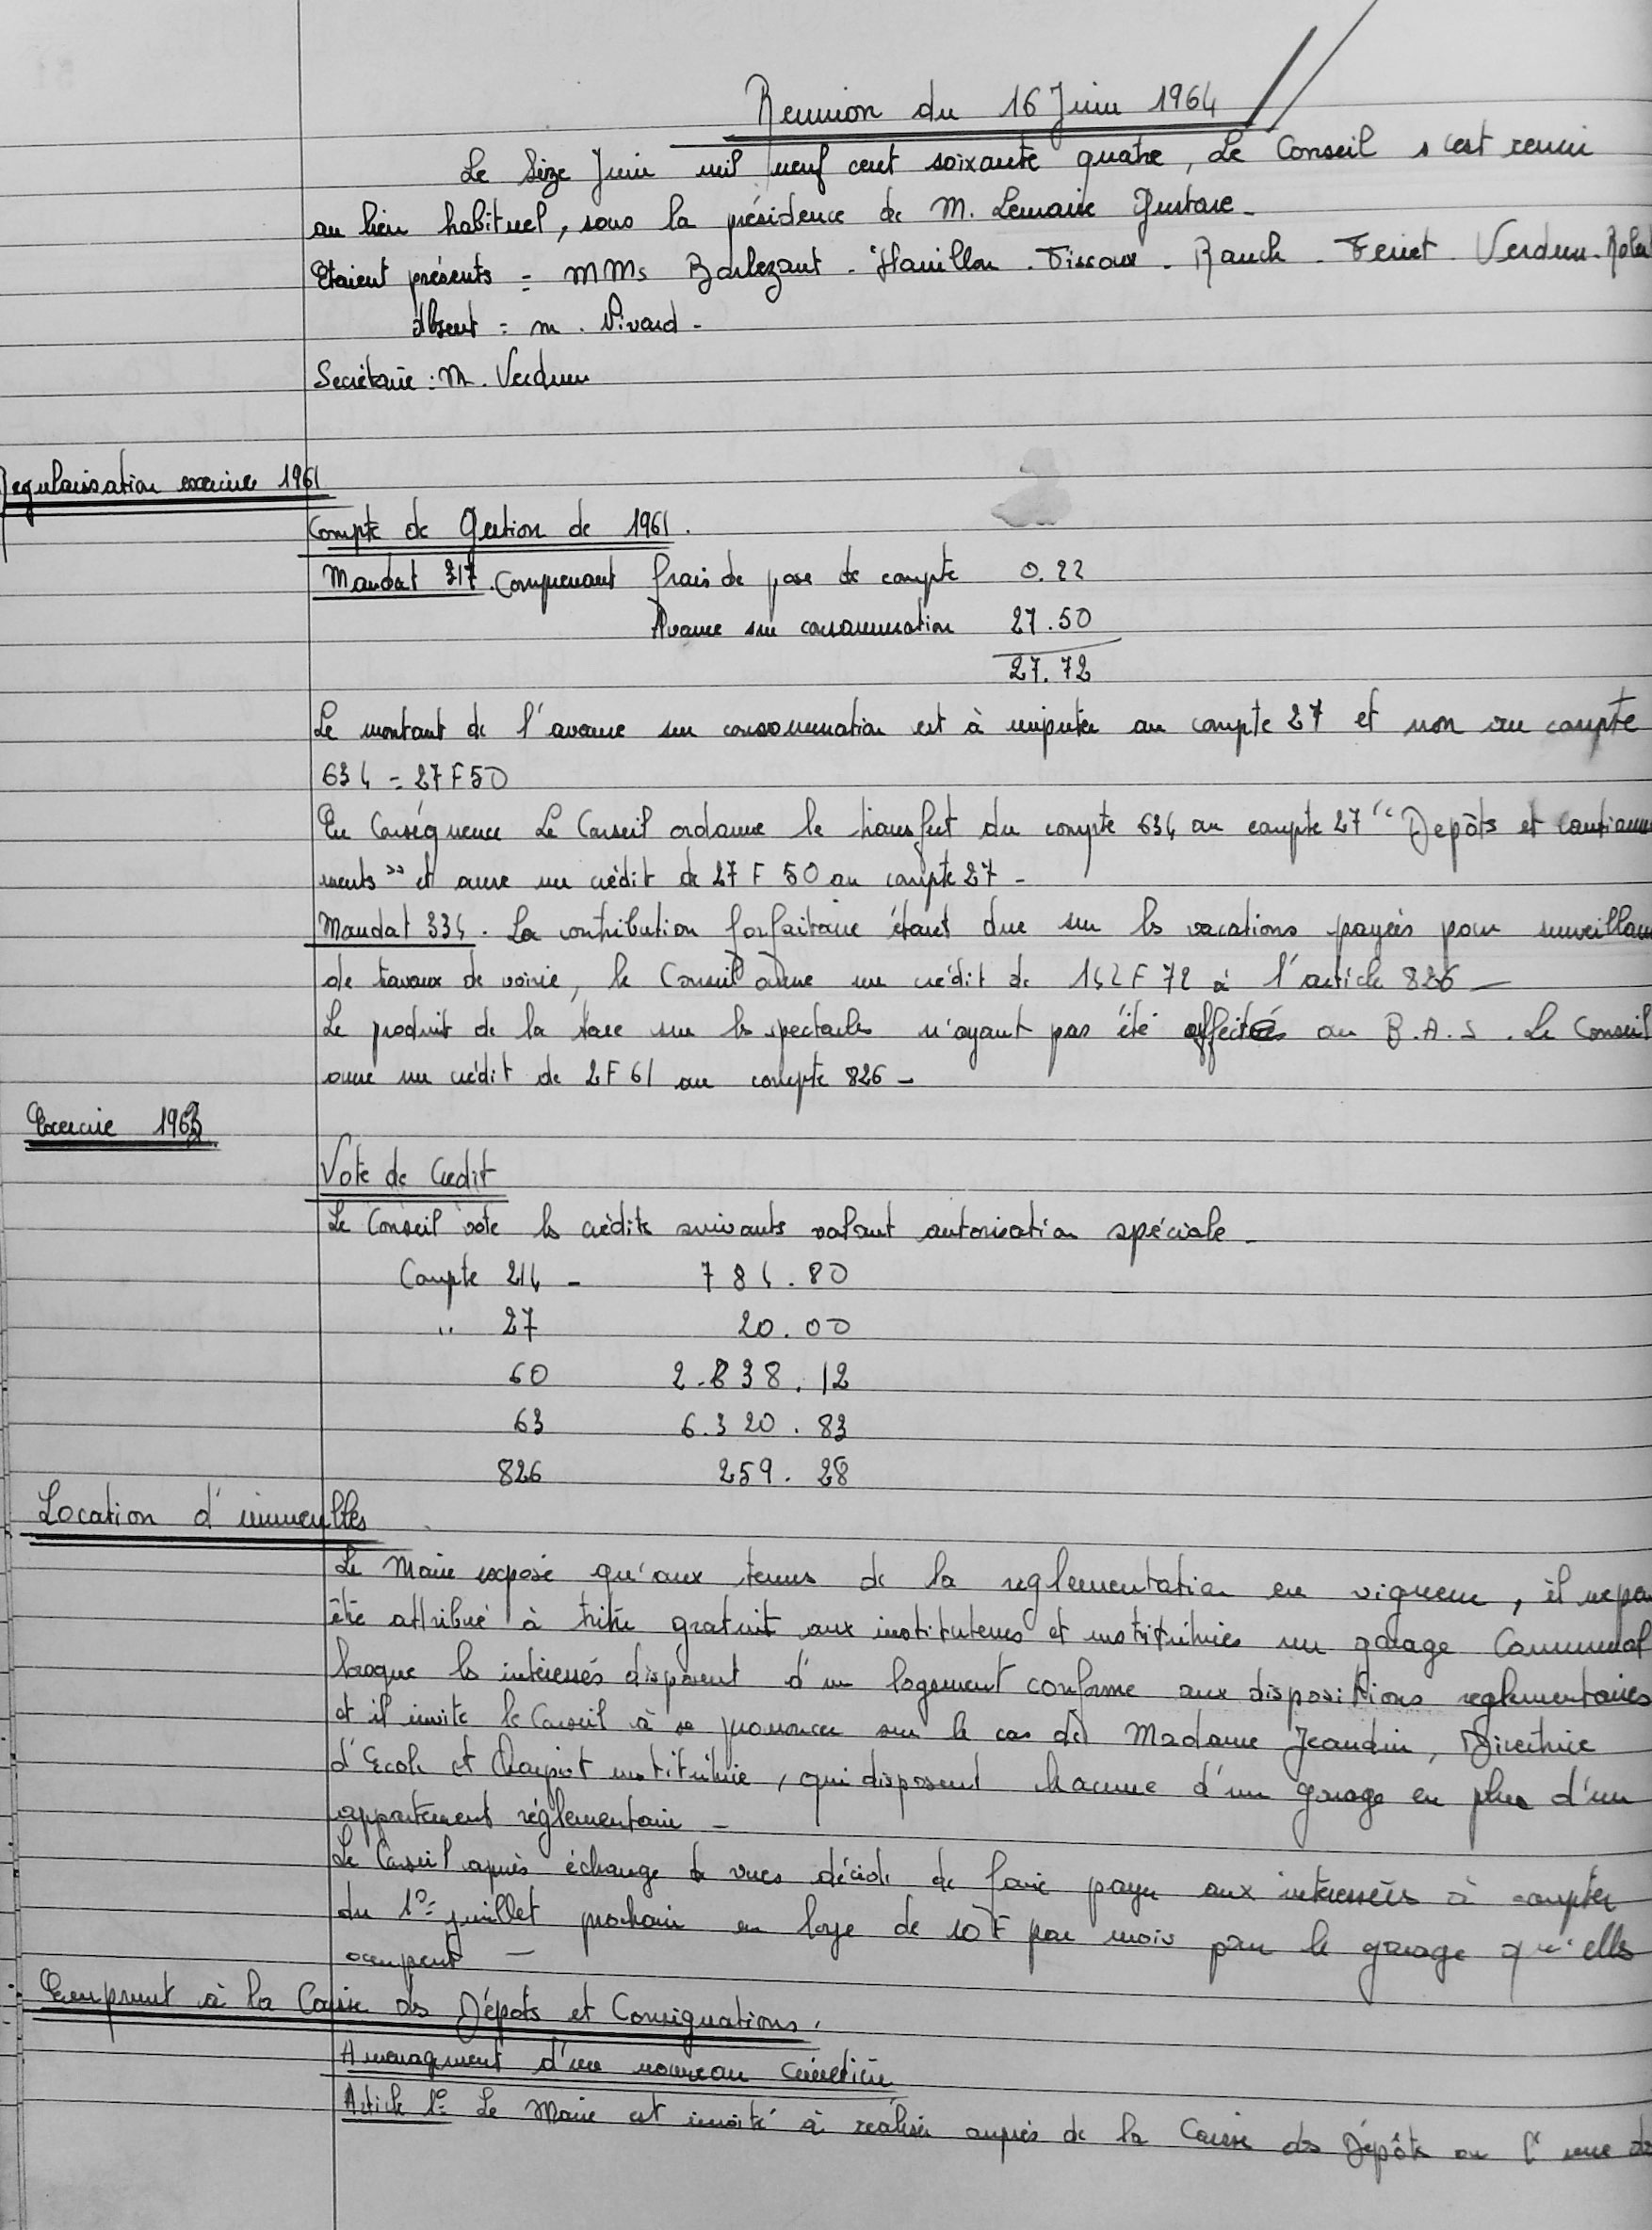 Reunion du 16 Juin 1964
Le Seize Juin mil neuf cent soixante quatre, Le Conseil s'est reuni
au lieu habituel, sous la présidence de M. Lemaire Gustave_
Etaient présents = MMs Barlezant - Hanillon - Tissoux - Rauch - Feriet - Verdun - Robert
Absent = M. Vivard -
Secrétaire : M. Verdun
Regularisation exercice 1961
Compte de Gestion de 1961.
Mandat 317. Comprenant frais de pose de compte 0.22
Avance sur consommation 27.50
27.72
Le montant de l'avance sur consommation est à imputer au compte 27 et non au compte
634 = 27 F 50
En Conséquence Le Conseil ordonne le transfert du compte 634 au compte 27 "Depôts et cautionne
ments" et ouvre un crédit de 27 F 50 au compte 27 -
Mandat 334. La contribution forfaitaire étant due sur les vacations payées pour surveillance
de travaux de voirie, le Conseil ouvre un crédit de 142 F 72 à l'article 826 -
Le produit de la taxe sur les spectacles n'ayant pas été affecté au B.A.S. Le Conseil
ouvre un crédit de 2 F 61 au compte 826 -
Exercice 1963
Vote de Credit
Le Conseil vote les crédits suivants valant autorisation spéciale -
Compte 214 - 784.80
" 27 20.00
60 2.838.12
63 6.320.83
826 259.28
Location d'immeubles
Le Maire expose qu'aux termes de la reglementation en vigueur, il ne peut
être attribué à titre gratuit aux instituteurs et institutrices un garage Communal
lorsque les intéressés disposent d'un logement conforme aux dispositions reglementaires
et il invite le Conseil à se prononcer sur le cas de Madame Jeandin, Directrice
d'Ecole et Chapiot institutrice, qui disposent chacune d'un garage en plus d'un
appartement réglementaire -
Le Conseil après échange de vues décide de faire payer aux interessées à compter
du 1er juillet prochain un loye de 10 F par mois pour le garage qu'elles
occupent -
Emprunt à la Caisse des Dépots et Consignations.
Amenagement d'un nouveau Cimetière
Article 1er Le Maire est invité à réaliser auprès de la Caisse des Dépôts ou l'une des